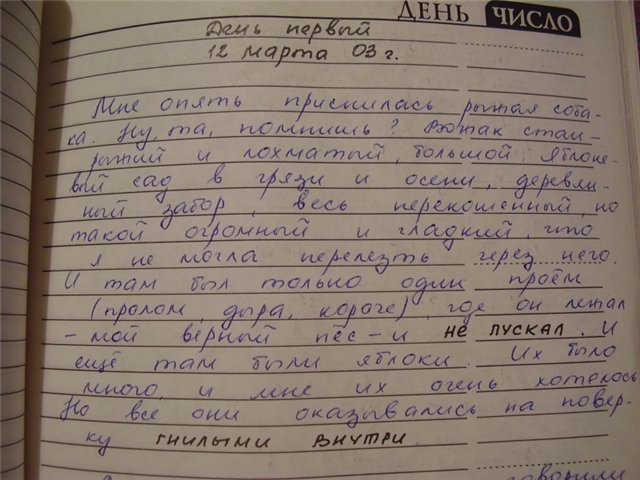 ДЕНЬ ЧИСЛО
День первый
12 марта 03 г.
Мне опять приснилась рыжая соба-
ка. Ну, та, помнишь? Вожак стаи –
рыжий и лохматый, большой. Яблоне-
вый сад в грязи и осени, деревян-
ный забор, весь перекошенный, но
такой огромный и гладкий, что
я не могла перелезть через него.
И там был только один проём
(пролом, дыра, короче), где он лежал
– мой верный пёс – и НЕ ПУСКАЛ. И
ещё там были яблоки. Их было
много, и мне их очень хотелось
Но все они оказывались на повер-
ку ГНИЛЫМИ ВНУТРИ.